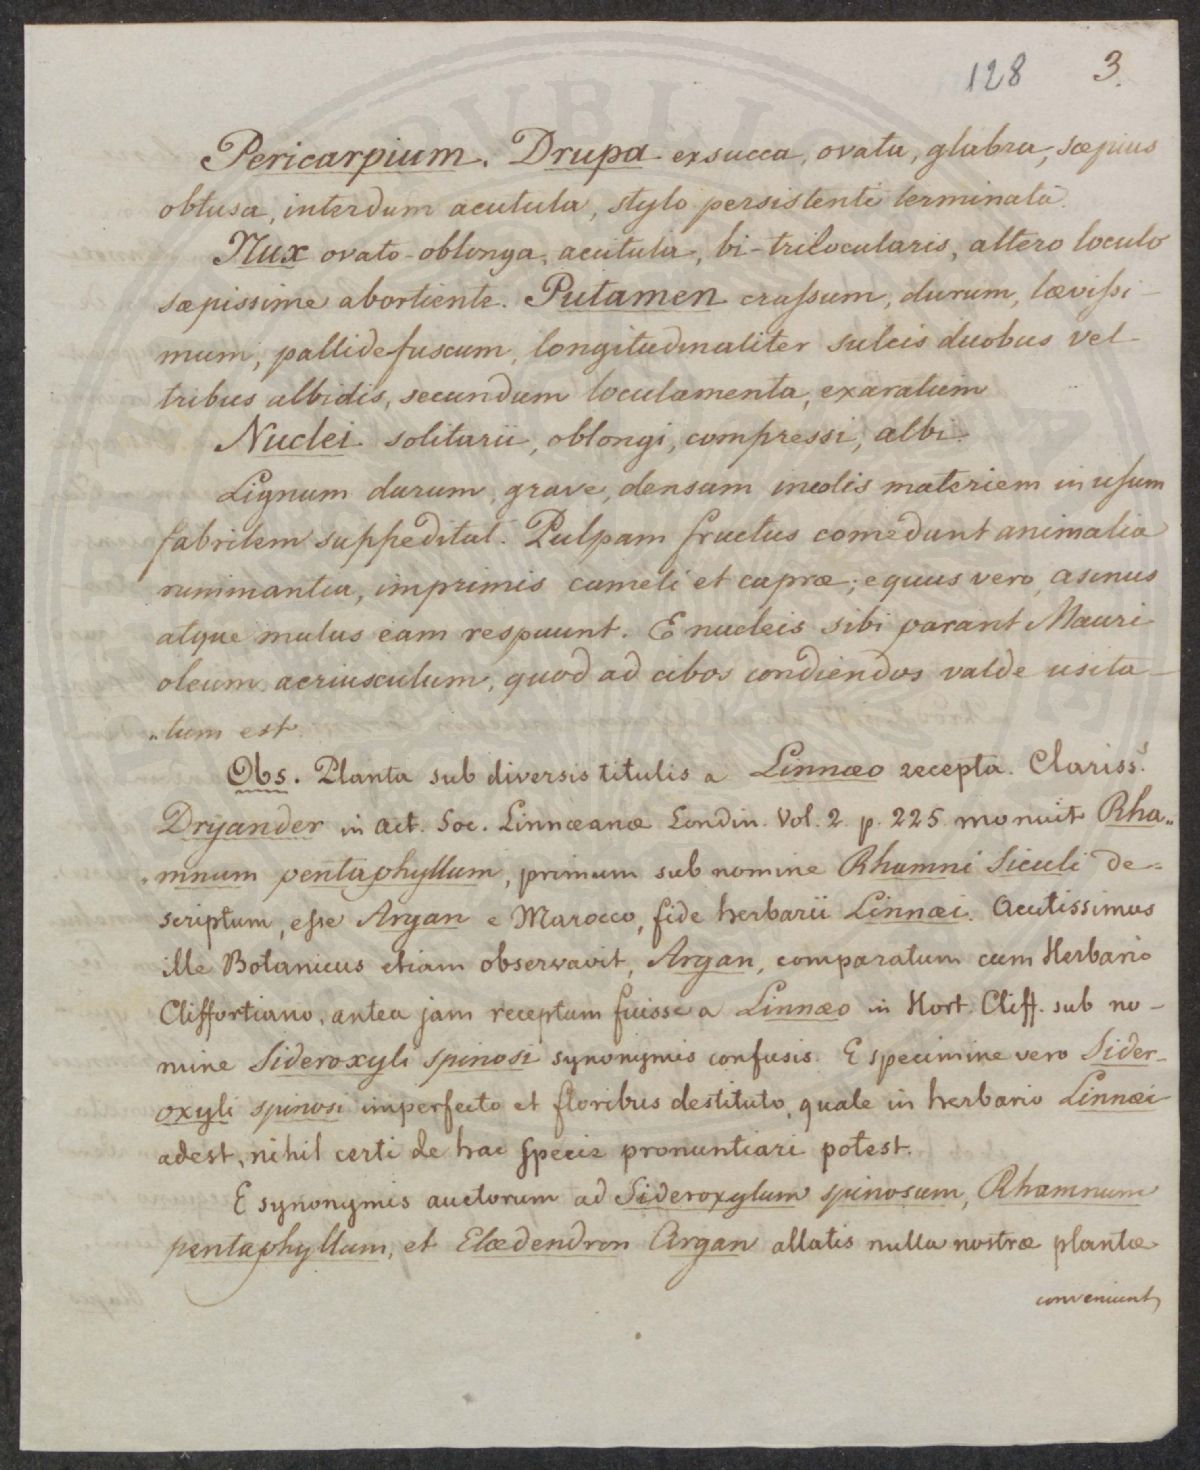 128 3.
Pericarpium. Drupa exsucca, ovata, glabra, sæpius
obtusa, interdum acutula, stylo persistente terminata.
Nux ovato-oblonga, acutula, bi-trilocularis, altero loculo
sæpissime abortiente. Putamen crassum, durum, lævissi-
mum, pallide fuscum, longitudinaliter sulcis duobus vel
tribus albidis, secundum loculamenta, exaratum
Nuclei solitarii, oblongi, compressi, albi.
Lignum durum, grave, densum incolis materiem in usum
fabrilem suppeditat. Pulpam fructus comedunt animalia
ruminantia, imprimis cameli et capræ; equus vero, asinus
atque mulus eam respuunt. E nucleis sibi parant Mauri
oleum acriusculum, quod ad cibos condiendos valde usita-
„tum est.
Obs. Planta sub diversis titulis a Linnæo recepta. Clariss.
Dryander in Act. Soc. Linnæanæ Londin. Vol. 2. p. 225 monuit Rha„
„mnum pentaphyllum, primum sub nomine Rhamni Siculi de-
scriptum, esse Argan e Marocco, fide herbarii Linnæi. Acutissimus
ille Botanicus etiam observavit, Argan, comparatum cum Herbario
Cliffortiano, antea jam receptum fuisse a Linnæo in Hort. Cliff. sub no-
mine Sideroxyli spinosi synonymis confusis. E specimine vero Sider-
oxyli spinosi imperfecto et floribus destituto, quale in herbario Linnæi
adest, nihil certi de hac specie pronuntiari potest.
E synonymis auctorum ad Sideroxylum spinosum, Rhamnum
pentaphyllum, et Elæodendron Argan allatis nulla nostræ plantæ
conveniunt,